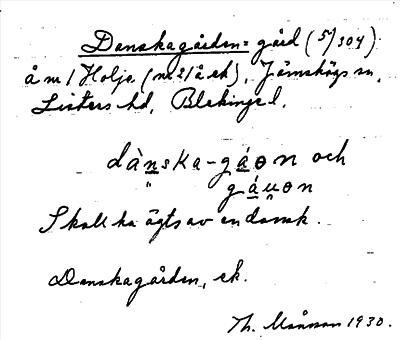 Danskagården = gård (5/304)
å n 1 Holje (n 21 å ek), Jämshögs sn,
Listers hd, Blekinge l.
dànska-gáɵn och
gáu̯ɵn
Skall ha ägts av en dansk.
Danskagården, ek.
Th. Månsson 1930.